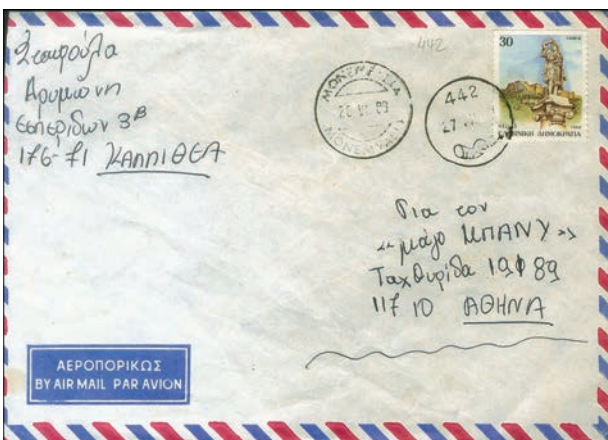 442
Εσπερίδων 3Β
176-71 ΚΑΛΛΙΘΕΑ
ΜΟΝΕΜΒΑΣΙΑ
26 VI 89
442
27
30
ΕΛΛΗΝΙΚΗ ΔΗΜΟΚΡΑΤΙΑ
Για τον
«μάγο ΜΠΑΝΥ»
Ταχ Θυρίδα 19089
117 10 ΑΘΗΝΑ
ΑΕΡΟΠΟΡΙΚΩΣ
BY AIR MAIL PAR AVION